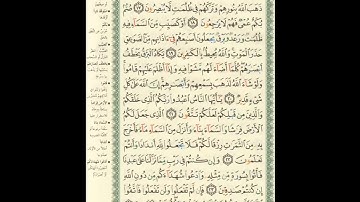 ذَهَبَ ٱللَّهُ بِنُورِهِمْ وَتَرَكَهُمْ فِى ظُلُمَٰتٍ لَّا يُبْصِرُونَ ١٧ صُمٌّۢ
بُكْمٌ عُمْىٌ فَهُمْ لَا يَرْجِعُونَ ١٨ أَوْ كَصَيِّبٍ مِّنَ ٱلسَّمَآءِ فِيهِ
ظُلُمَٰتٌ وَرَعْدٌ وَبَرْقٌ يَجْعَلُونَ أَصَٰبِعَهُمْ فِىٓ ءَاذَانِهِم مِّنَ ٱلصَّوَٰعِقِ
حَذَرَ ٱلْمَوْتِ وَٱللَّهُ مُحِيطٌۢ بِٱلْكَٰفِرِينَ ١٩ يَكَادُ ٱلْبَرْقُ يَخْطَفُ
أَبْصَٰرَهُمْ كُلَّمَآ أَضَآءَ لَهُم مَّشَوْا۟ فِيهِ وَإِذَآ أَظْلَمَ عَلَيْهِمْ قَامُوا۟
وَلَوْ شَآءَ ٱللَّهُ لَذَهَبَ بِسَمْعِهِمْ وَأَبْصَٰرِهِمْ إِنَّ ٱللَّهَ عَلَىٰ كُلِّ
شَىْءٍ قَدِيرٌ ٢٠ يَٰٓأَيُّهَا ٱلنَّاسُ ٱعْبُدُوا۟ رَبَّكُمُ ٱلَّذِى خَلَقَكُمْ
وَٱلَّذِينَ مِن قَبْلِكُمْ لَعَلَّكُمْ تَتَّقُونَ ٢١ ٱلَّذِى جَعَلَ لَكُمُ
ٱلْأَرْضَ فِرَٰشًا وَٱلسَّمَآءَ بِنَآءً وَأَنزَلَ مِنَ ٱلسَّمَآءِ مَآءً فَأَخْرَجَ بِهِۦ
مِنَ ٱلثَّمَرَٰتِ رِزْقًا لَّكُمْ فَلَا تَجْعَلُوا۟ لِلَّهِ أَندَادًا وَأَنتُمْ
تَعْلَمُونَ ٢٢ وَإِن كُنتُمْ فِى رَيْبٍ مِّمَّا نَزَّلْنَا عَلَىٰ عَبْدِنَا
فَأْتُوا۟ بِسُورَةٍ مِّن مِّثْلِهِۦ وَٱدْعُوا۟ شُهَدَآءَكُم مِّن دُونِ ٱللَّهِ
إِن كُنتُمْ صَٰدِقِينَ ٢٣ فَإِن لَّمْ تَفْعَلُوا۟ وَلَن تَفْعَلُوا۟ فَٱتَّقُوا۟